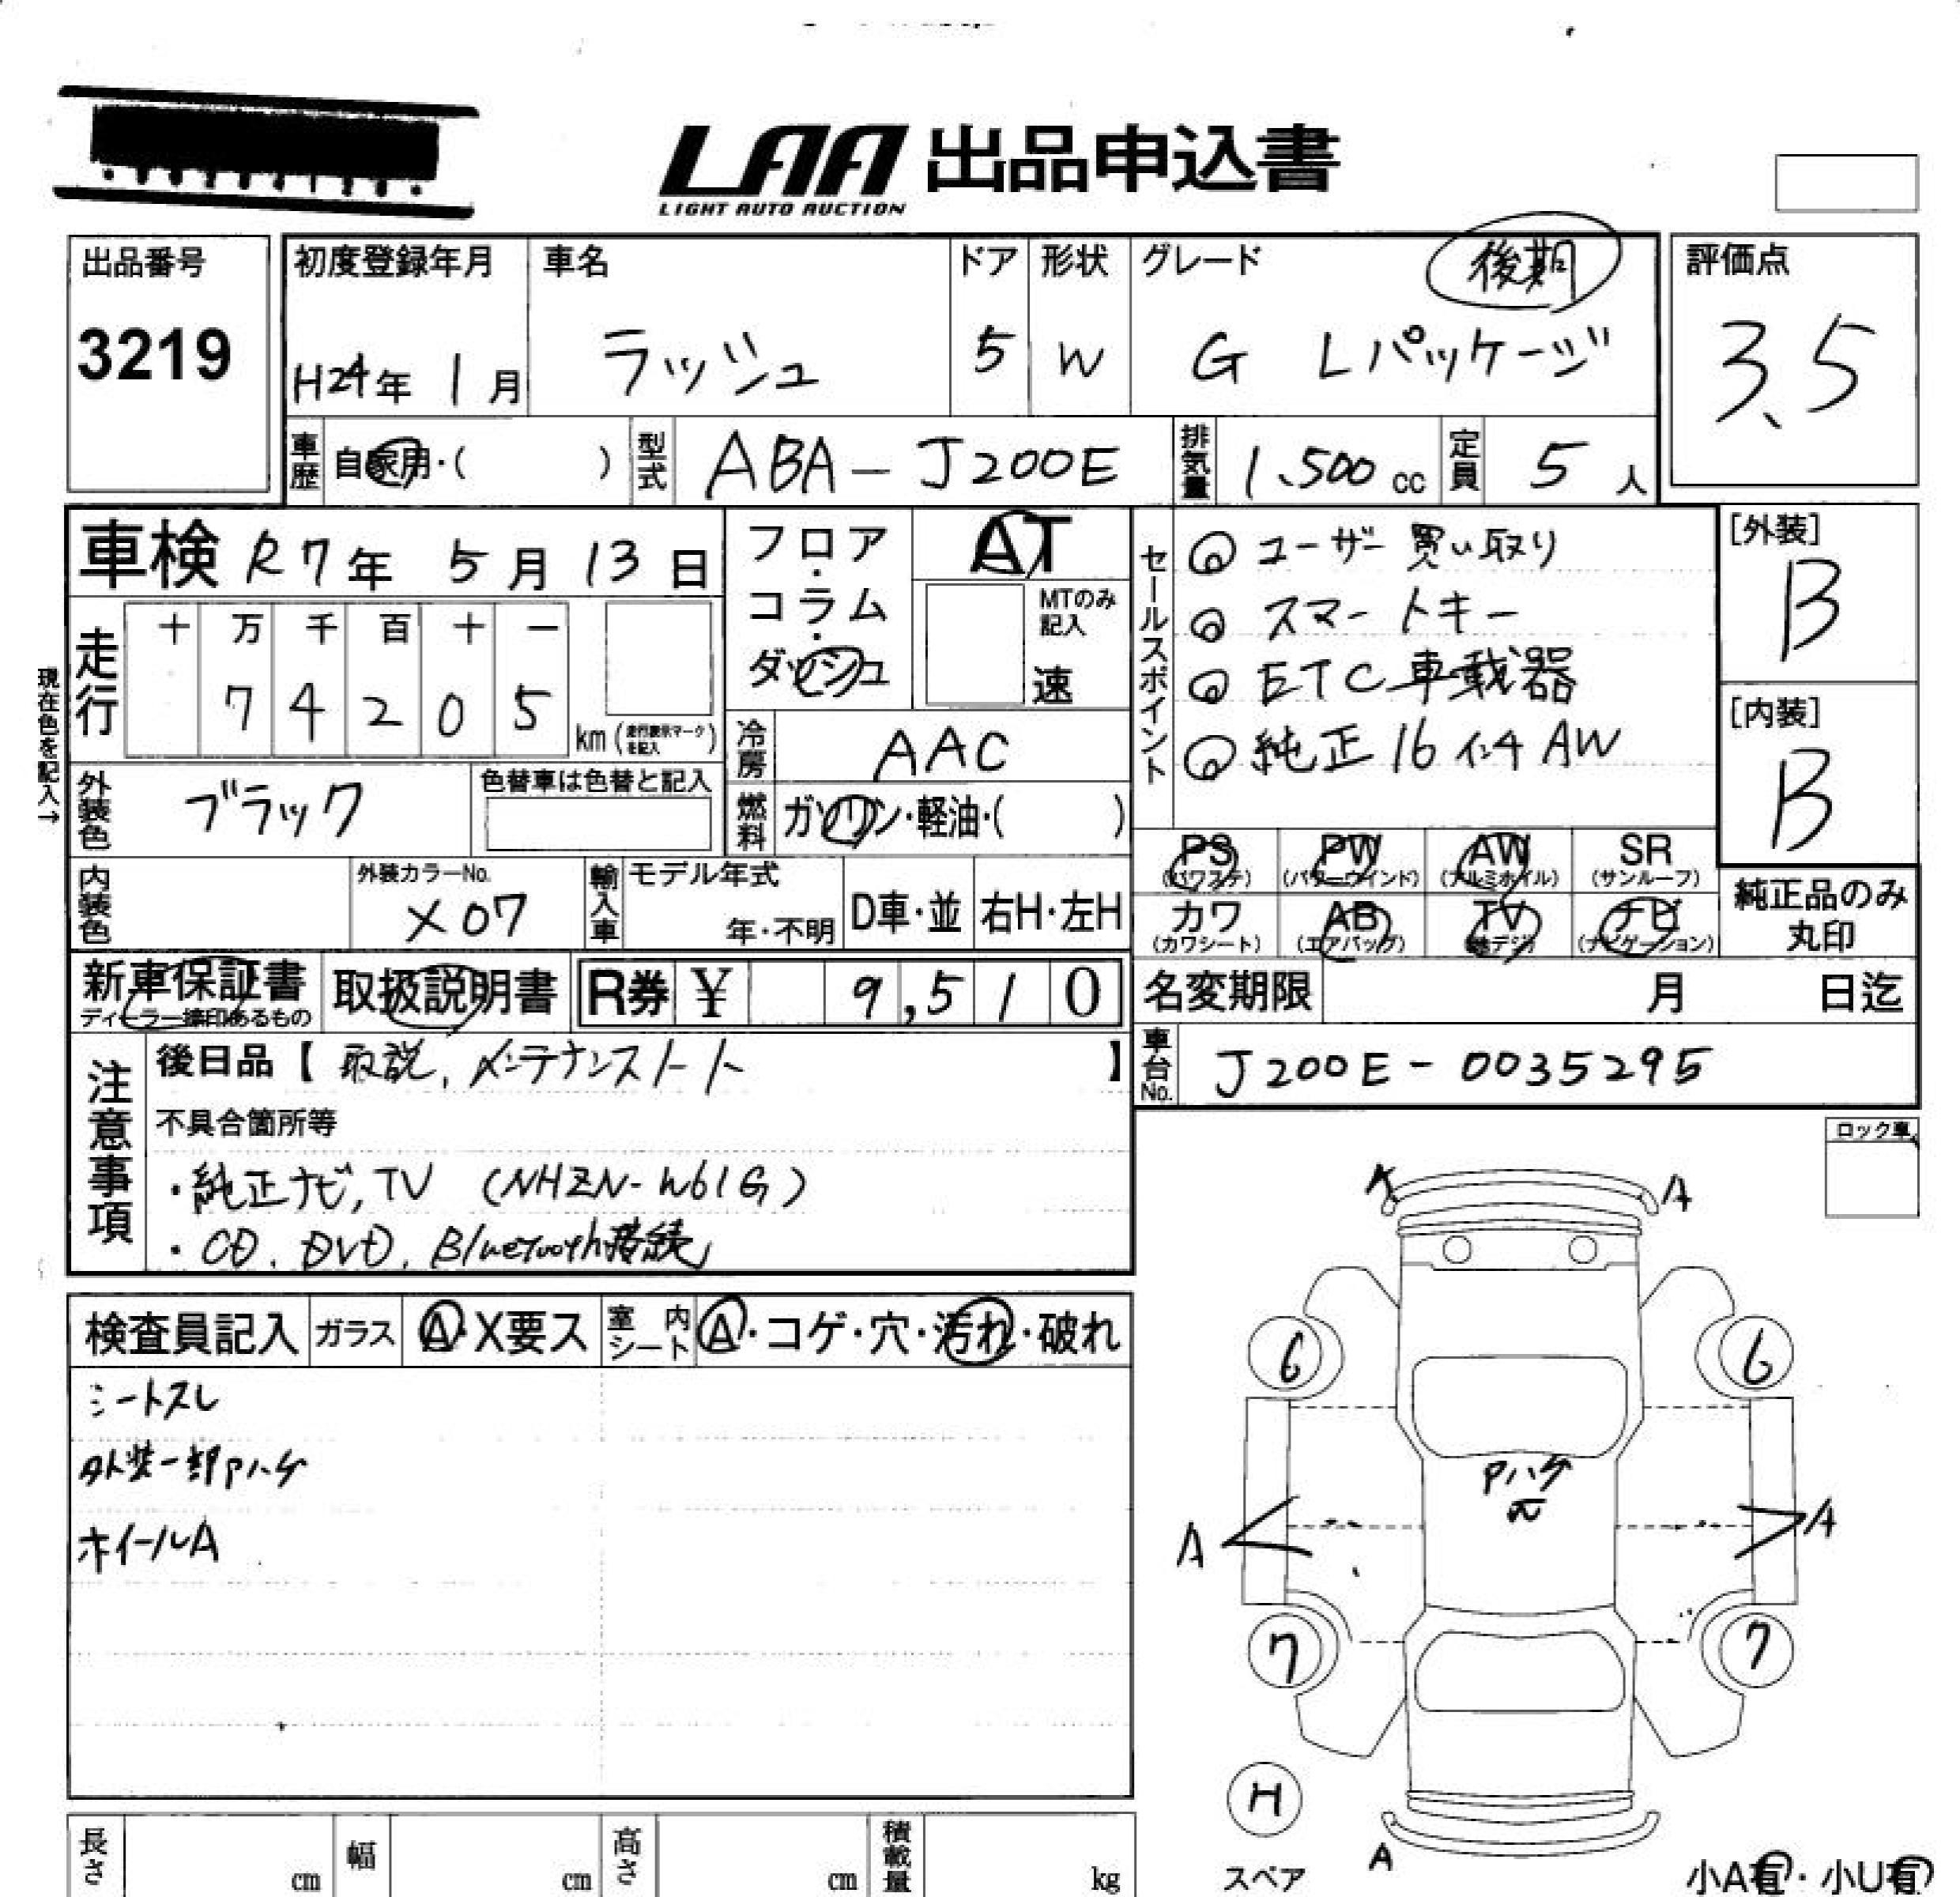 LAA 出品申込書
LIGHT AUTO AUCTION
出品番号
3219
初度登録年月
H24年 1月
車名
ラッシュ
ドア
5
形状
W
グレード 後期
G Lパッケージ
評価点
3.5
車歴 自家用・( )
型式 ABA-J200E
排気量 1.500 cc
定員 5 人
車検 R7年 5月 13日
走行
十 万 千 百 十 一
7 4 2 0 5
km (走行表示マークを記入)
現在色を記入→
外装色 ブラック
色替車は色替と記入
内装色
外装カラーNo.
X07
フロア・コラム・ダッシュ
AT
MTのみ記入
速
冷房 AAC
燃料 ガソリン・軽油・( )
輸入車 モデル年式
年・不明
D車・並
右H・左H
セールスポイント
◎ ユーザー買い取り
◎ スマートキー
◎ ETC車載器
◎ 純正16インチAW
[外装]
B
[内装]
B
PS (パワステ)
PW (パワーウインド)
AW (アルミホイル)
SR (サンルーフ)
カワ (カワシート)
AB (エアバッグ)
TV (地デジ)
ナビ (ナビゲーション)
純正品のみ丸印
新車保証書
ディーラー捺印あるもの
取扱説明書
R券 ¥ 9,510
名変期限 月 日迄
車台No. J200E-0035295
注意事項
後日品【 取説, メンテナンスノート 】
不具合箇所等
・純正ナビ,TV (NHZN-W61G)
・CD, DVD, Bluetooth接続
ロック車
検査員記入
ガラス A・X要ス
室内シート A・コゲ・穴・汚れ・破れ
シートスレ
外装一部Pハゲ
ホイールA
A A
6 6
Pハゲ
A A
7 7
H
スペア
A
小A有・小U有
長さ cm
幅 cm
高さ cm
積載量 kg